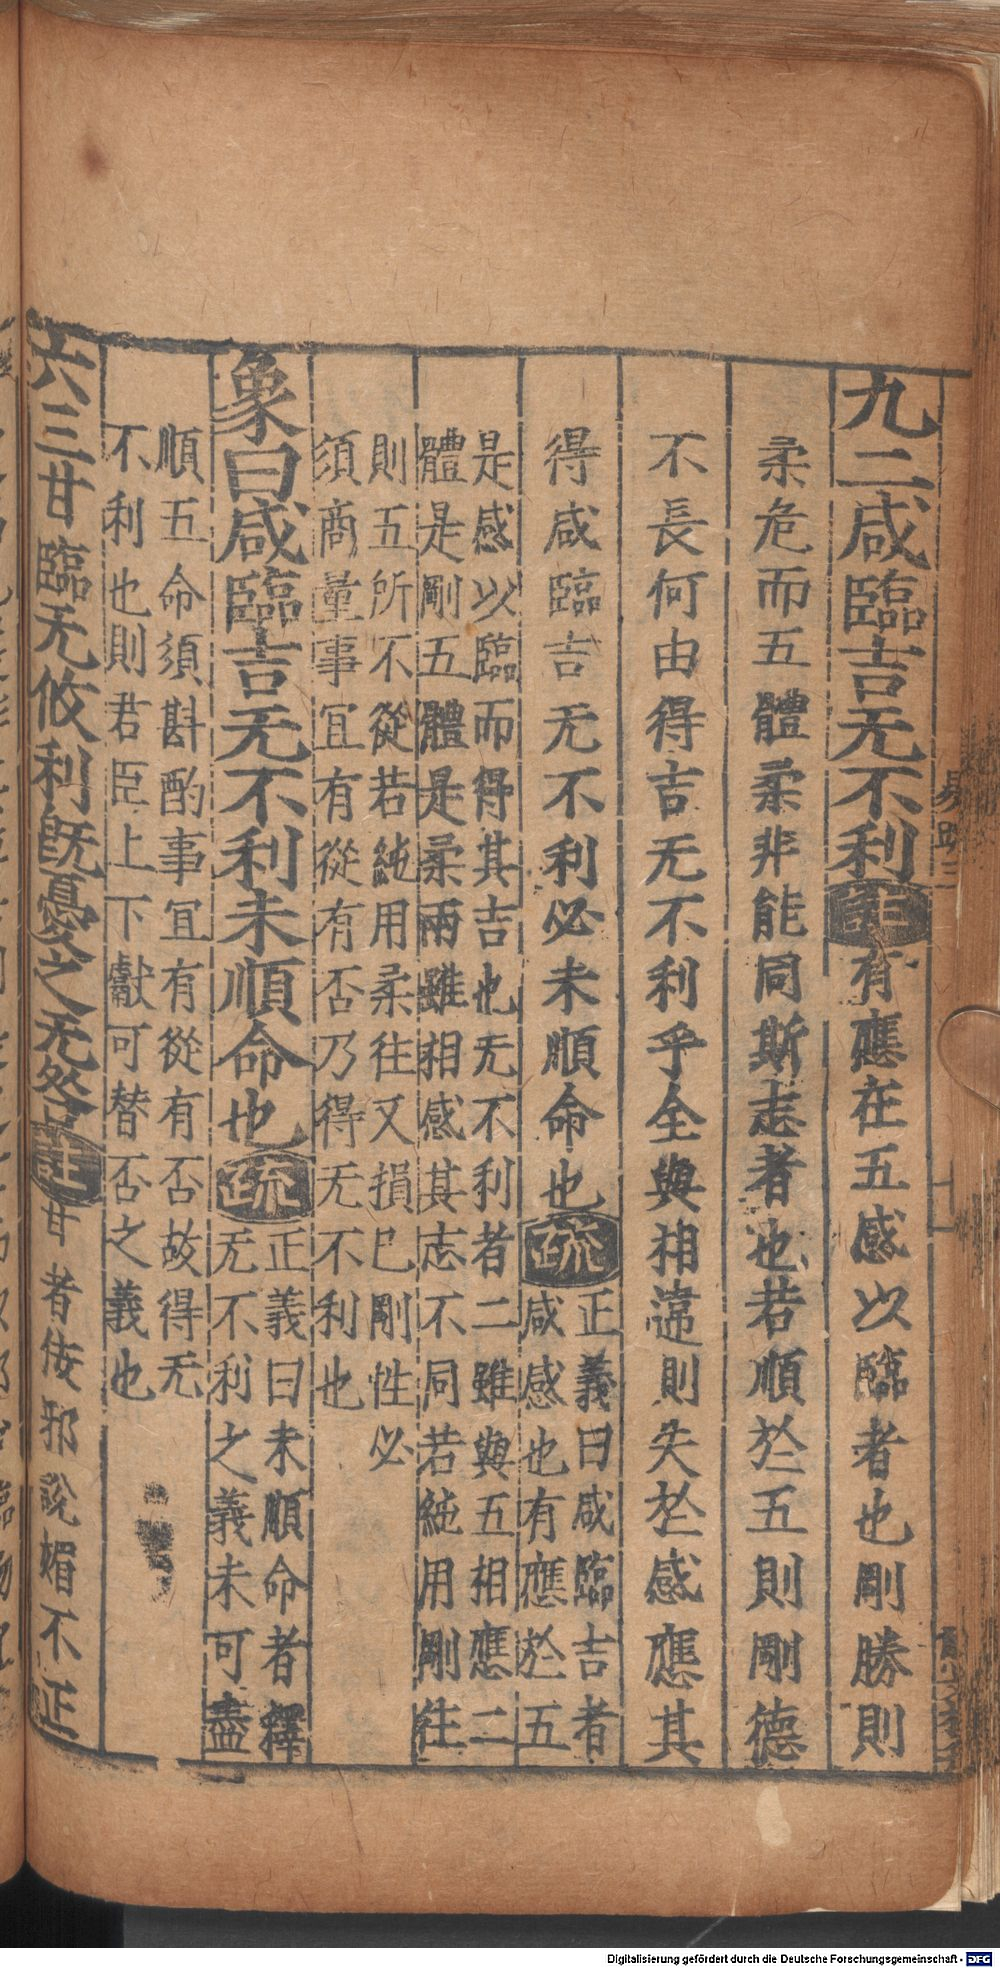 九二咸臨吉无不利注有應在五感以臨者也剛勝則
柔危而五體柔非能同斯志者也若順於五則剛德
不長何由得吉无不利乎全與相違則失於感應其
得咸臨吉无不利必未順命也疏正義曰咸臨吉者
咸感也有應於五
是感以臨而得其吉也无不利者二雖與五相應二
體是剛五體是柔兩雖相感其志不同若純用剛往
則五所不從若純用柔往又損巳剛性必
須商量事宜有從有否乃得无不利也
象曰咸臨吉无不利未順命也疏正義曰未順命者釋
无不利之義未可盡
順五命須斟酌事宜有從有否故得无
不利也則君臣上下獻可替否之義也
六三甘臨无攸利既憂之无咎注甘者佞邪說媚不正
易疏三
Digitalisierung gefördert durch die Deutsche Forschungsgemeinschaft - DFG